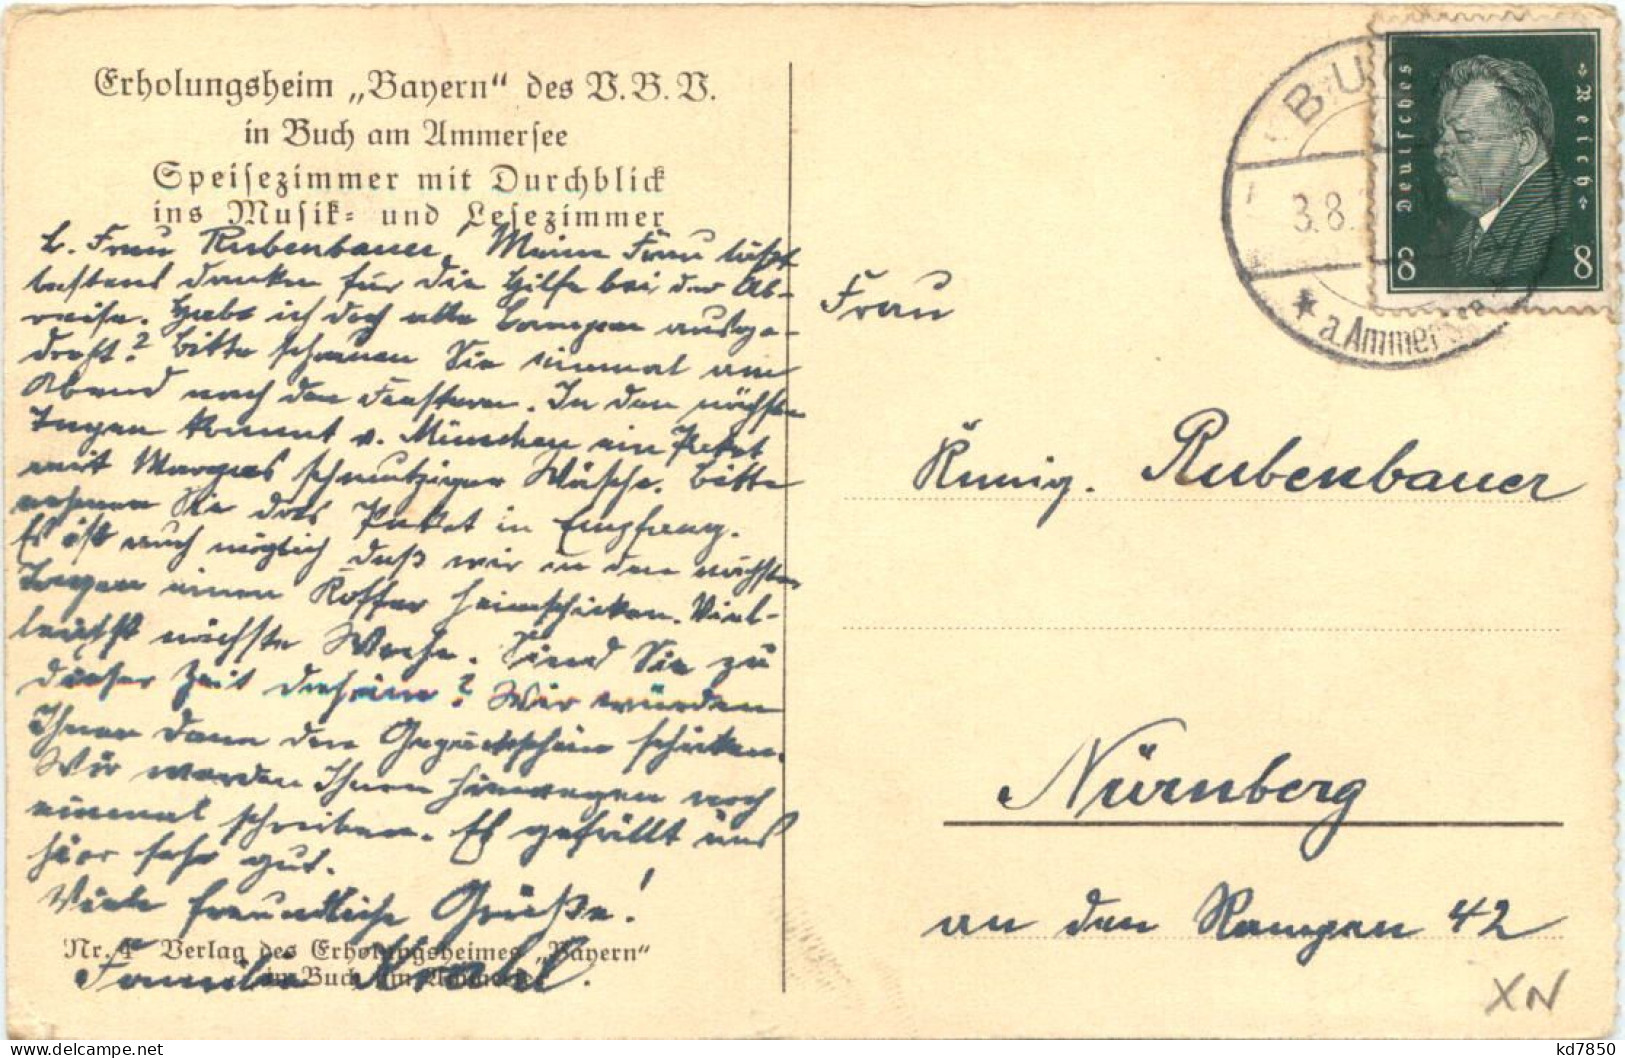 Erholungsheim „Bayern“ des V.B.V.
in Buch am Ammersee
Speisezimmer mit Durchblick
ins Musik- und Lesezimmer
L. Frau Rubenbauer, Meine Frau läßt
bestens danken für die Hilfe bei der Ab-
reise. Habe ich doch alle Lampen ausge-
dreht? Bitte schauen Sie einmal am
Abend nach den Fenstern. In den nächsten
Tagen kommt v. München ein Paket
mit Margas schmutziger Wäsche. Bitte
nehmen Sie das Paket in Empfang.
Es ist auch möglich daß wir in den nächsten
Tagen einen Koffer heimschicken. Viel-
leicht nächste Woche. Sind Sie zu
dieser Zeit daheim? Wir würden
Ihnen dann den Gepäckschein schicken.
Wir werden Ihnen hinwegen noch
einmal schreiben. Es gefällt uns
hier sehr gut.
Viele freundliche Grüße!
Nr. 4 Verlag des Erholungsheimes „Bayern“
in Buch am Ammersee
Familie
BUCH
3.8.
a. Ammersee
Deutsches Reich
8 8
Frau
Kunig. Rubenbauer
Nürnberg
an den Rampen 42
XN
kd7850